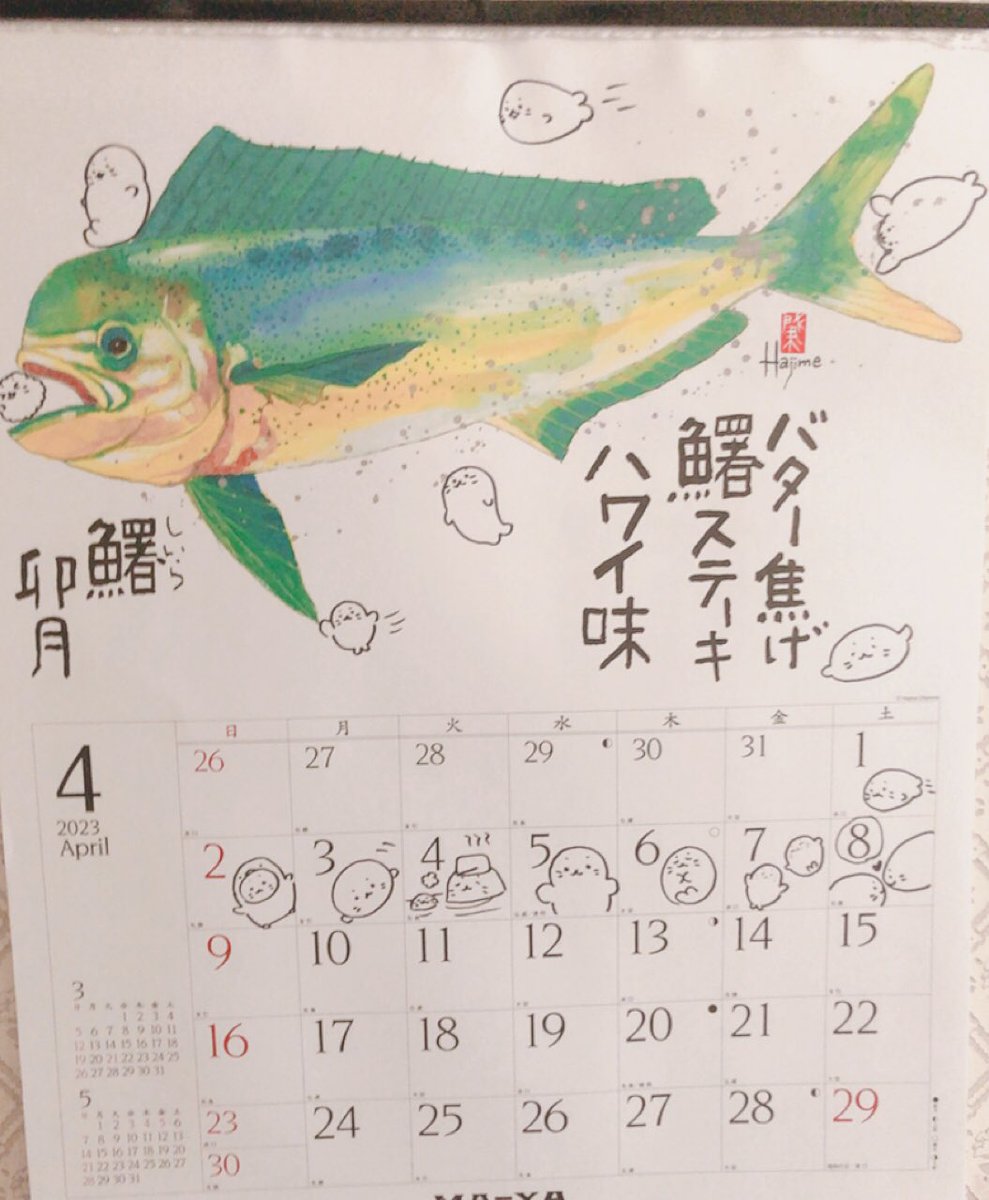 Hajime
バター焦げ
鱪ステーキ
ハワイ味
しいら
鱪
卯月
4
2023
April
日 月 火 水 木 金 土
26 27 28 29 30 31 1
2 3 4 5 6 7 8
9 10 11 12 13 14 15
16 17 18 19 20 21 22
23 24 25 26 27 28 29
30
3
日 月 火 水 木 金 土
1 2 3 4
5 6 7 8 9 10 11
12 13 14 15 16 17 18
19 20 21 22 23 24 25
26 27 28 29 30 31
5
日 月 火 水 木 金 土
1 2 3 4 5 6
7 8 9 10 11 12 13
14 15 16 17 18 19 20
21 22 23 24 25 26 27
28 29 30 31
MA-YA